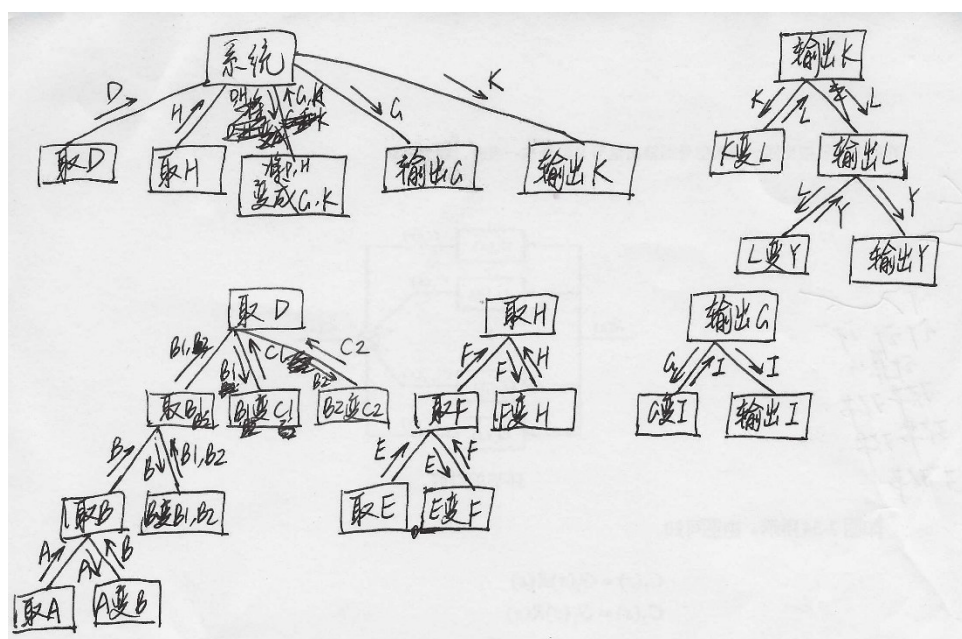 系统
D
H
DH
G,K
G
K
取D
取H
将D,H
变成G,K
输出G
输出K
输出K
K
L
L
K变L
输出L
L
Y
Y
L变Y
输出Y
取D
B1,B2
B1
C1
B2
C2
取B1
B2
B1变C1
B2变C2
B
B
B1,B2
取B
B变B1,B2
A
A
B
取A
A变B
取H
F
F
H
取F
F变H
E
E
F
取E
E变F
输出G
G
I
I
G变I
输出I